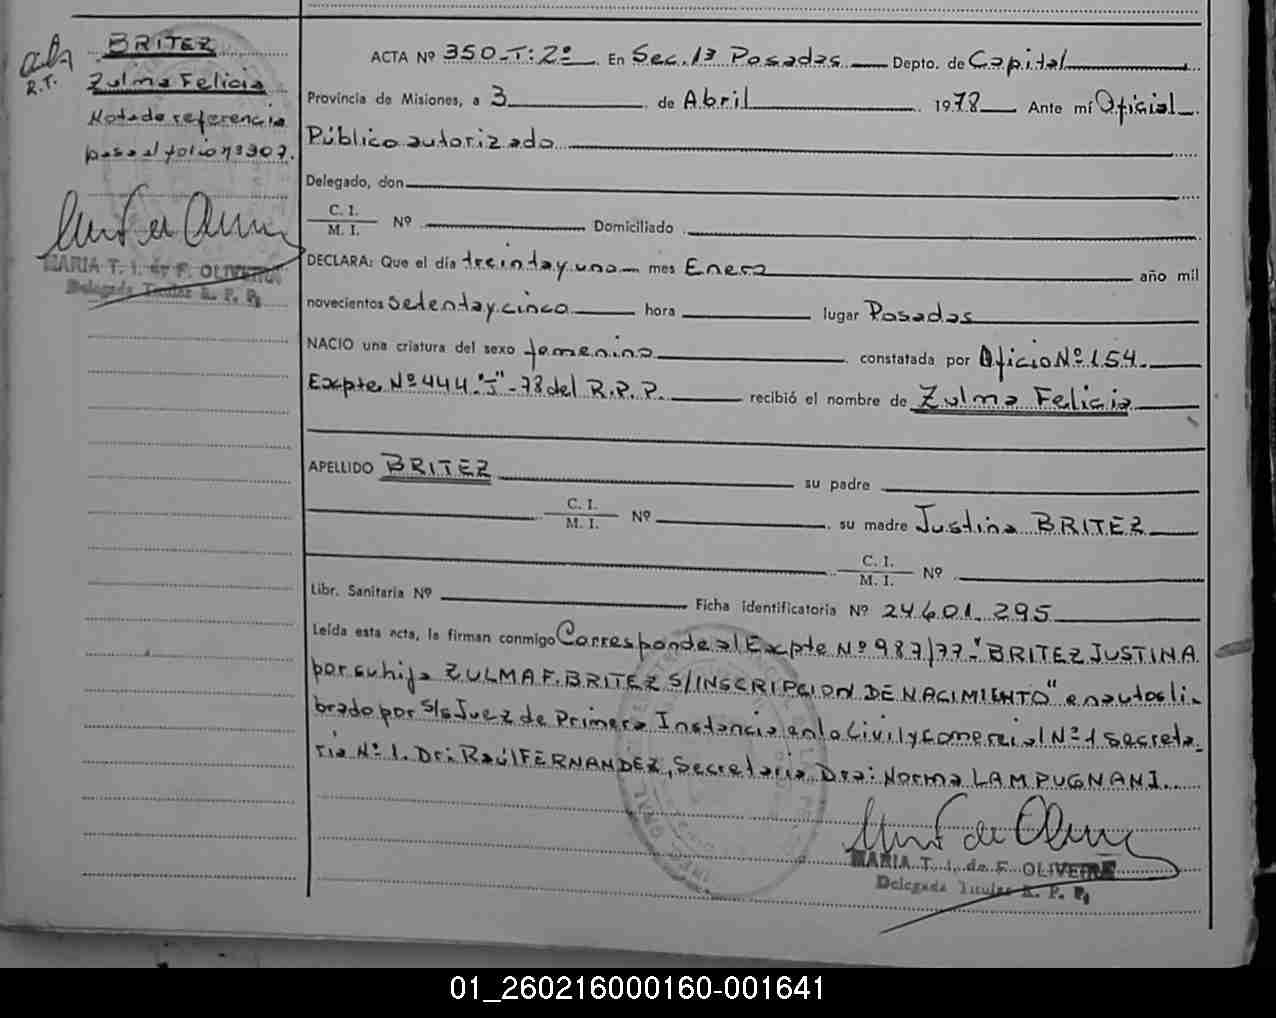 BRITEZ
Zulma Felicia
Nota de referencia
pasa al folio nº 307.
R.T.
MARIA T. I. de F. OLIVEIRA
Delegada Titular R. P. P.
ACTA Nº 350-T: 2º En Sec. 1ª Posadas Depto. de Capital
Provincia de Misiones, a 3 de Abril 1978 Ante mí Oficial
Público autorizado
Delegado, don
C. I.
M. I. Nº Domiciliado
DECLARA: Que el día treinta y uno mes Enero año mil
novecientos setenta y cinco hora lugar Posadas
NACIO una criatura del sexo femenino constatada por Oficio Nº 154.
Expte. Nº 444-"J"-78 del R.P.P. recibió el nombre de Zulma Felicia
APELLIDO BRITEZ su padre
C. I.
M. I. Nº , su madre Justina BRITEZ
C. I.
M. I. Nº
Libr. Sanitaria Nº Ficha identificatoria Nº 24.601.295
Leída esta acta, la firman conmigo Corresponde al Expte Nº 987/77-"BRITEZ JUSTINA
por su hija ZULMA F. BRITEZ S/INSCRIPCION DE NACIMIENTO" en autos li-
brado por S/S Juez de Primera Instancia en lo Civil y Comercial Nº 1 Secreta-
ría Nº 1. Dr: Raúl FERNANDEZ, Secretaria Dra: Norma LAMPUGNANI.
MARIA T. I. de F. OLIVEIRA
Delegada Titular R. P. P.
01_260216000160-001641